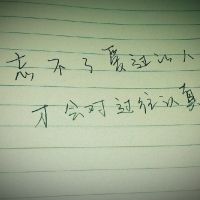 忘不了爱过的人
才会对过往认真